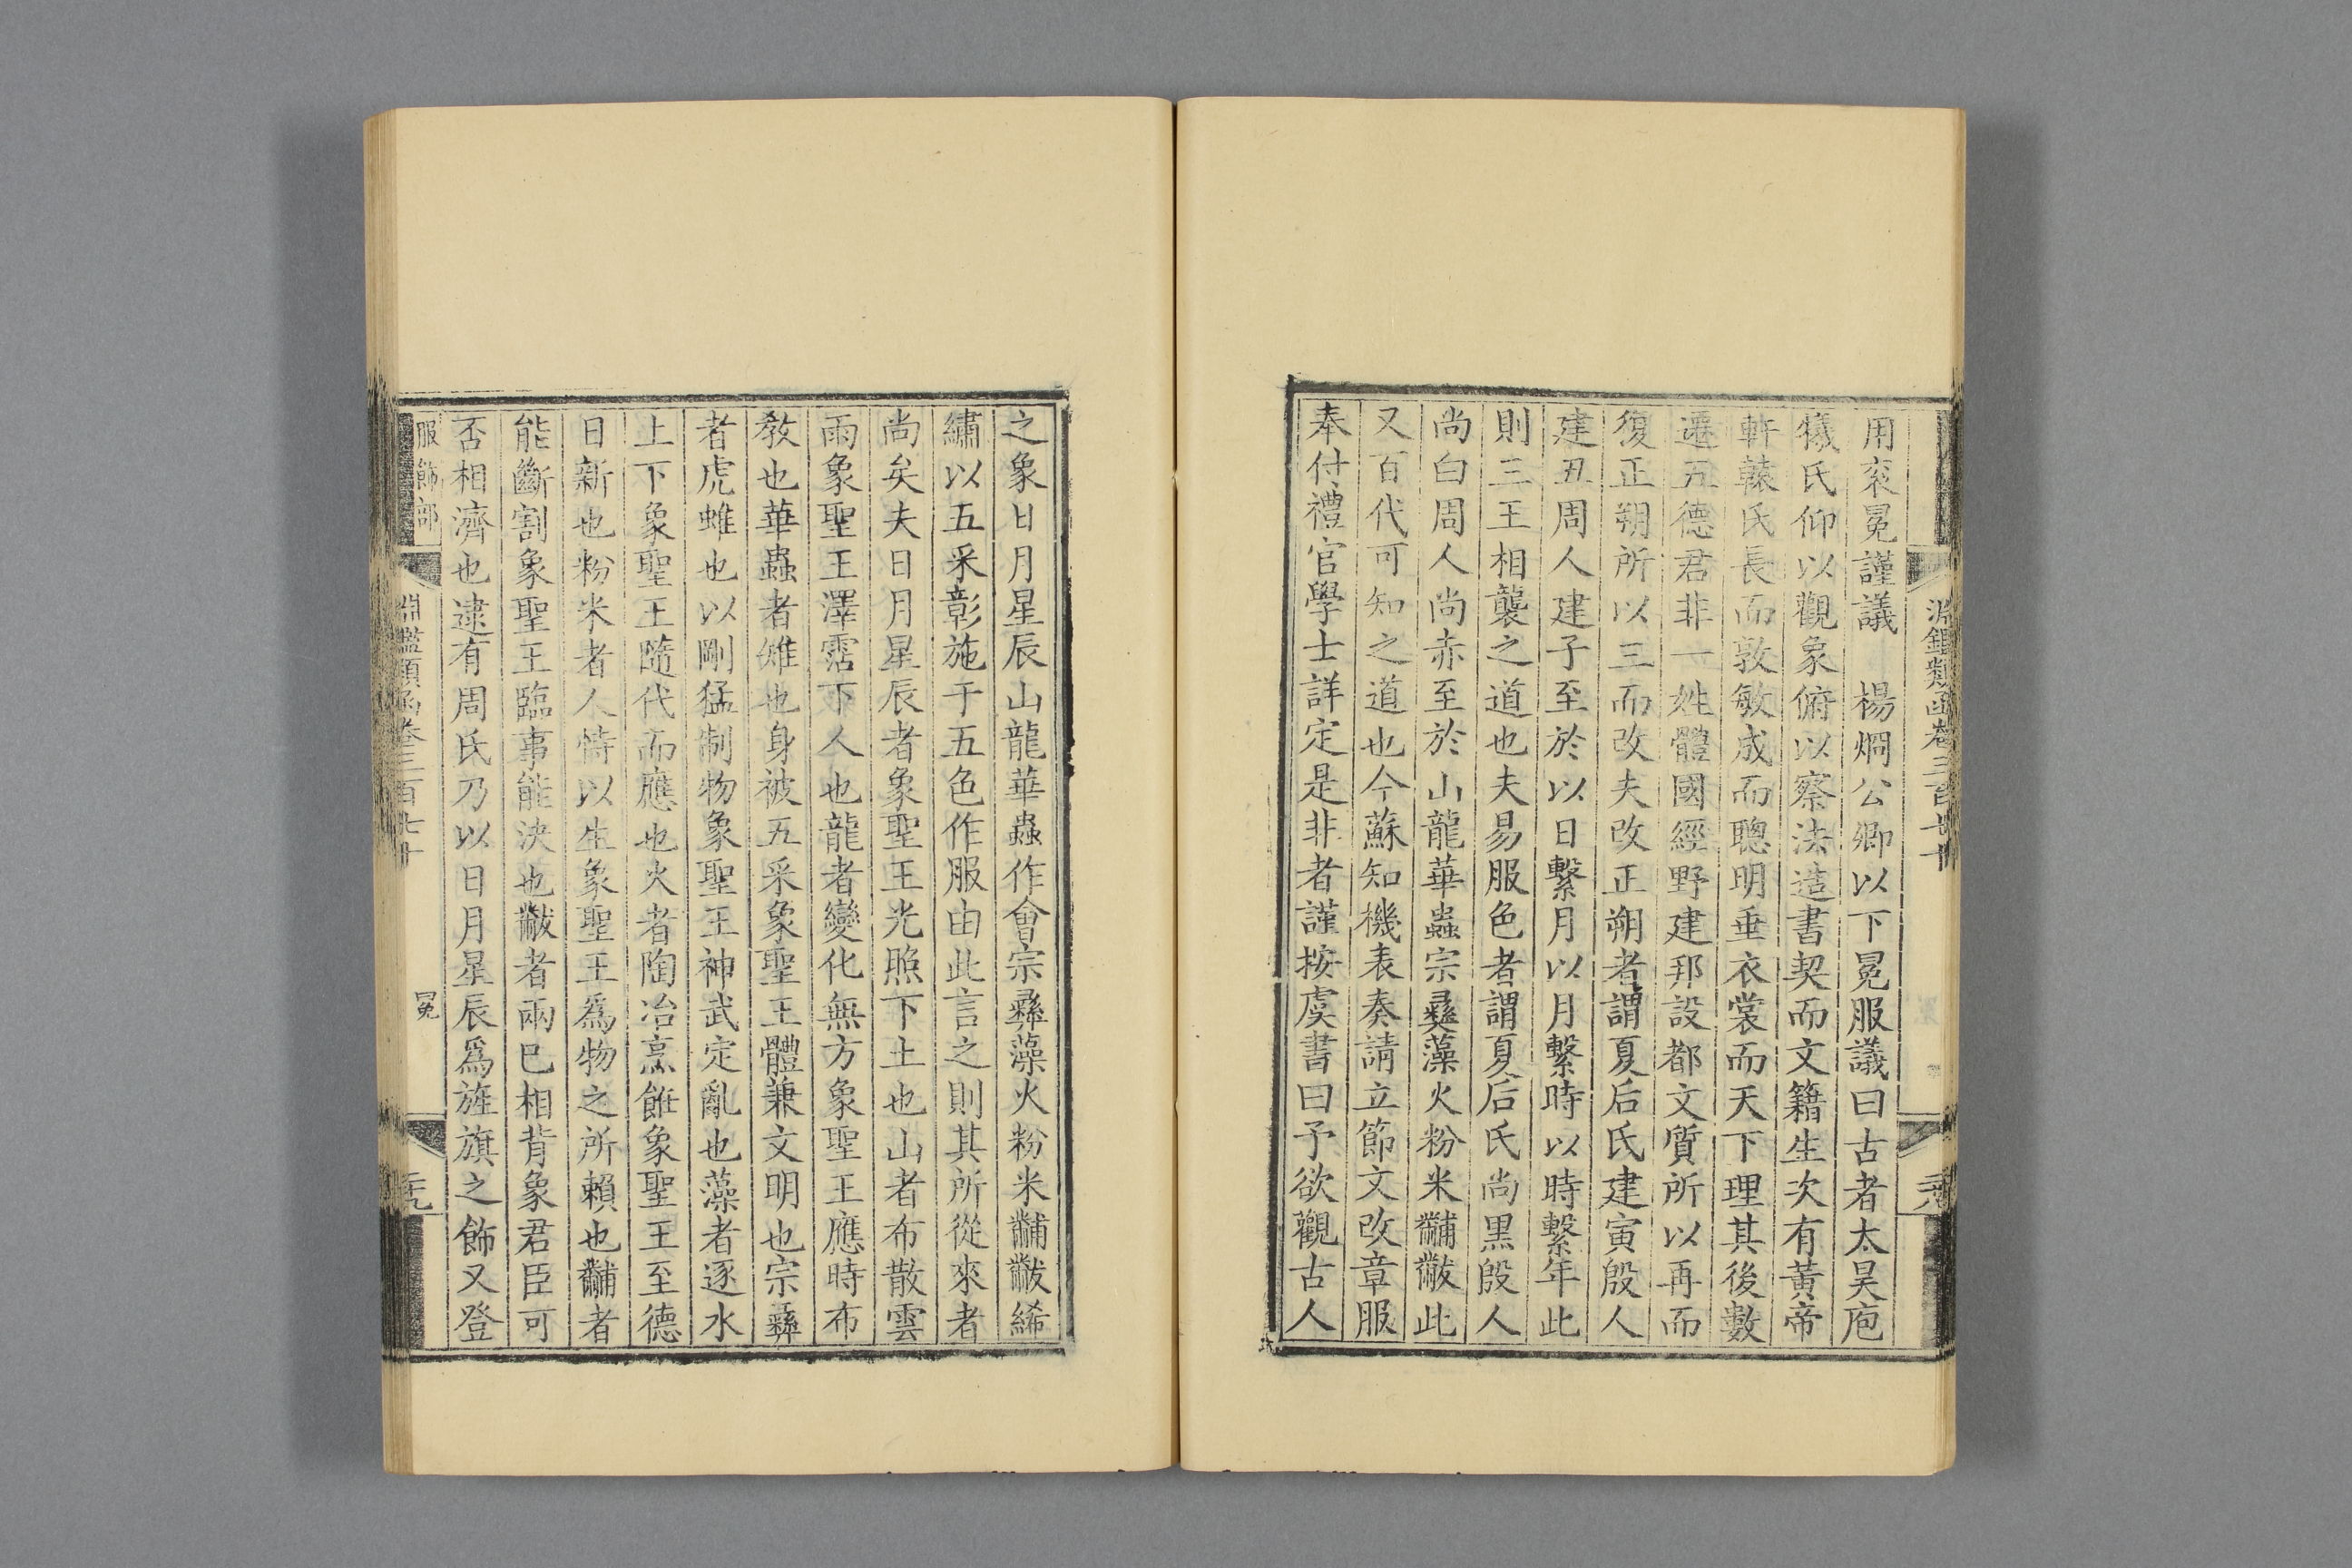 用衮冕謹議　楊烱公卿以下冕服議曰古者太昊庖
犧氏仰以觀象俯以察法造書契而文籍生次有黃帝
軒轅氏長而敦敏成而聰明垂衣裳而天下理其後數
遷五德君非一姓體國經野建邦設都文質所以再而
復正朔所以三而改夫改正朔者謂夏后氏建寅殷人
建丑周人建子至於以日繫月以月繫時以時繫年此
則三王相襲之道也夫易服色者謂夏后氏尚黑殷人
尚白周人尚赤至於山龍華蟲宗彝藻火粉米黼黻此
又百代可知之道也今蘇知機表奏請立節文改章服
奉付禮官學士詳定是非者謹按虞書曰予欲觀古人
之象日月星辰山龍華蟲作會宗彝藻火粉米黼黻絺
繡以五采彰施于五色作服由此言之則其所從來者
尚矣夫日月星辰者象聖王光照下土也山者布散雲
雨象聖王澤霑下人也龍者變化無方象聖王應時布
教也華蟲者雉也身被五采象聖王體兼文明也宗彝
者虎蜼也以剛猛制物象聖王神武定亂也藻者逐水
上下象聖王隨代而應也火者陶冶烹飪象聖王至德
日新也粉米者人恃以生象聖王爲物之所賴也黼者
能斷割象聖王臨事能決也黻者兩已相背象君臣可
否相濟也逮有周氏乃以日月星辰爲旌旗之飾又登
服飾部
淵鑑類函卷三百七十
冕